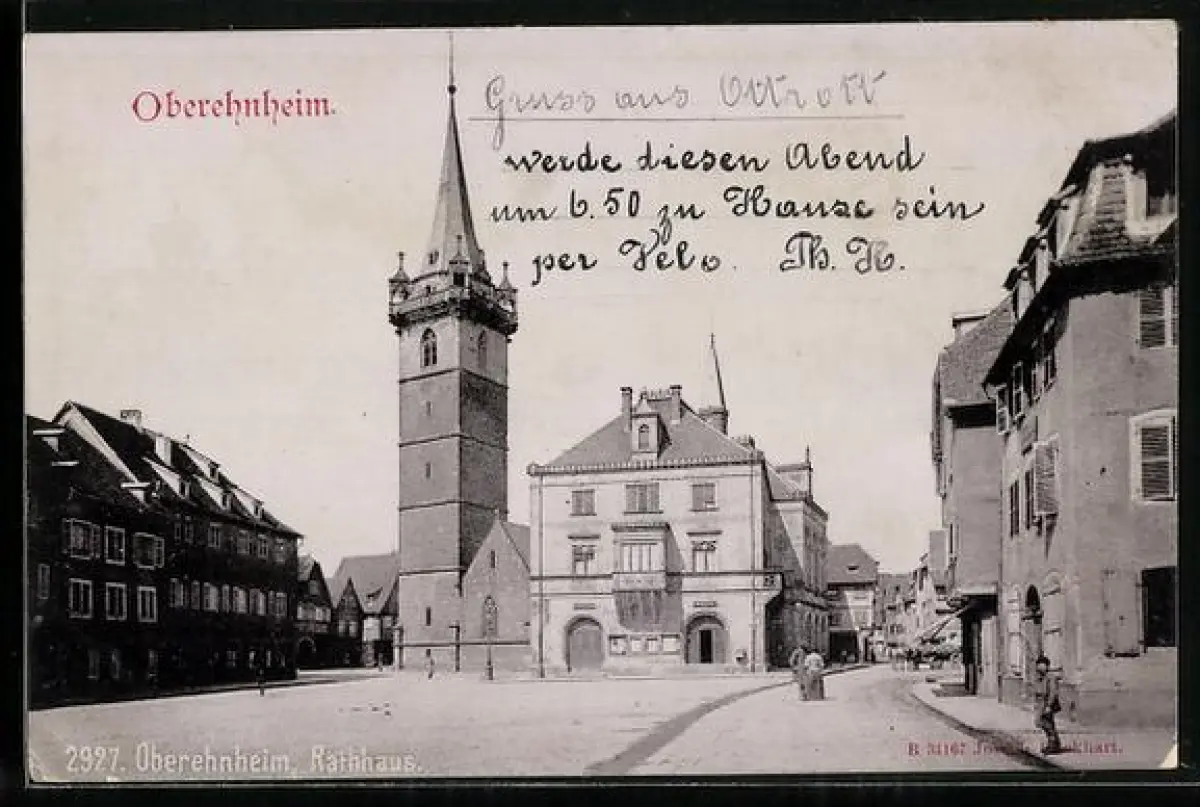 Oberehnheim.
Gruss aus Ottrott
werde diesen Abend
um 6.50 zu Hause sein
per Velo. Th. H.
2927. Oberehnheim, Rathhaus.
R 31167